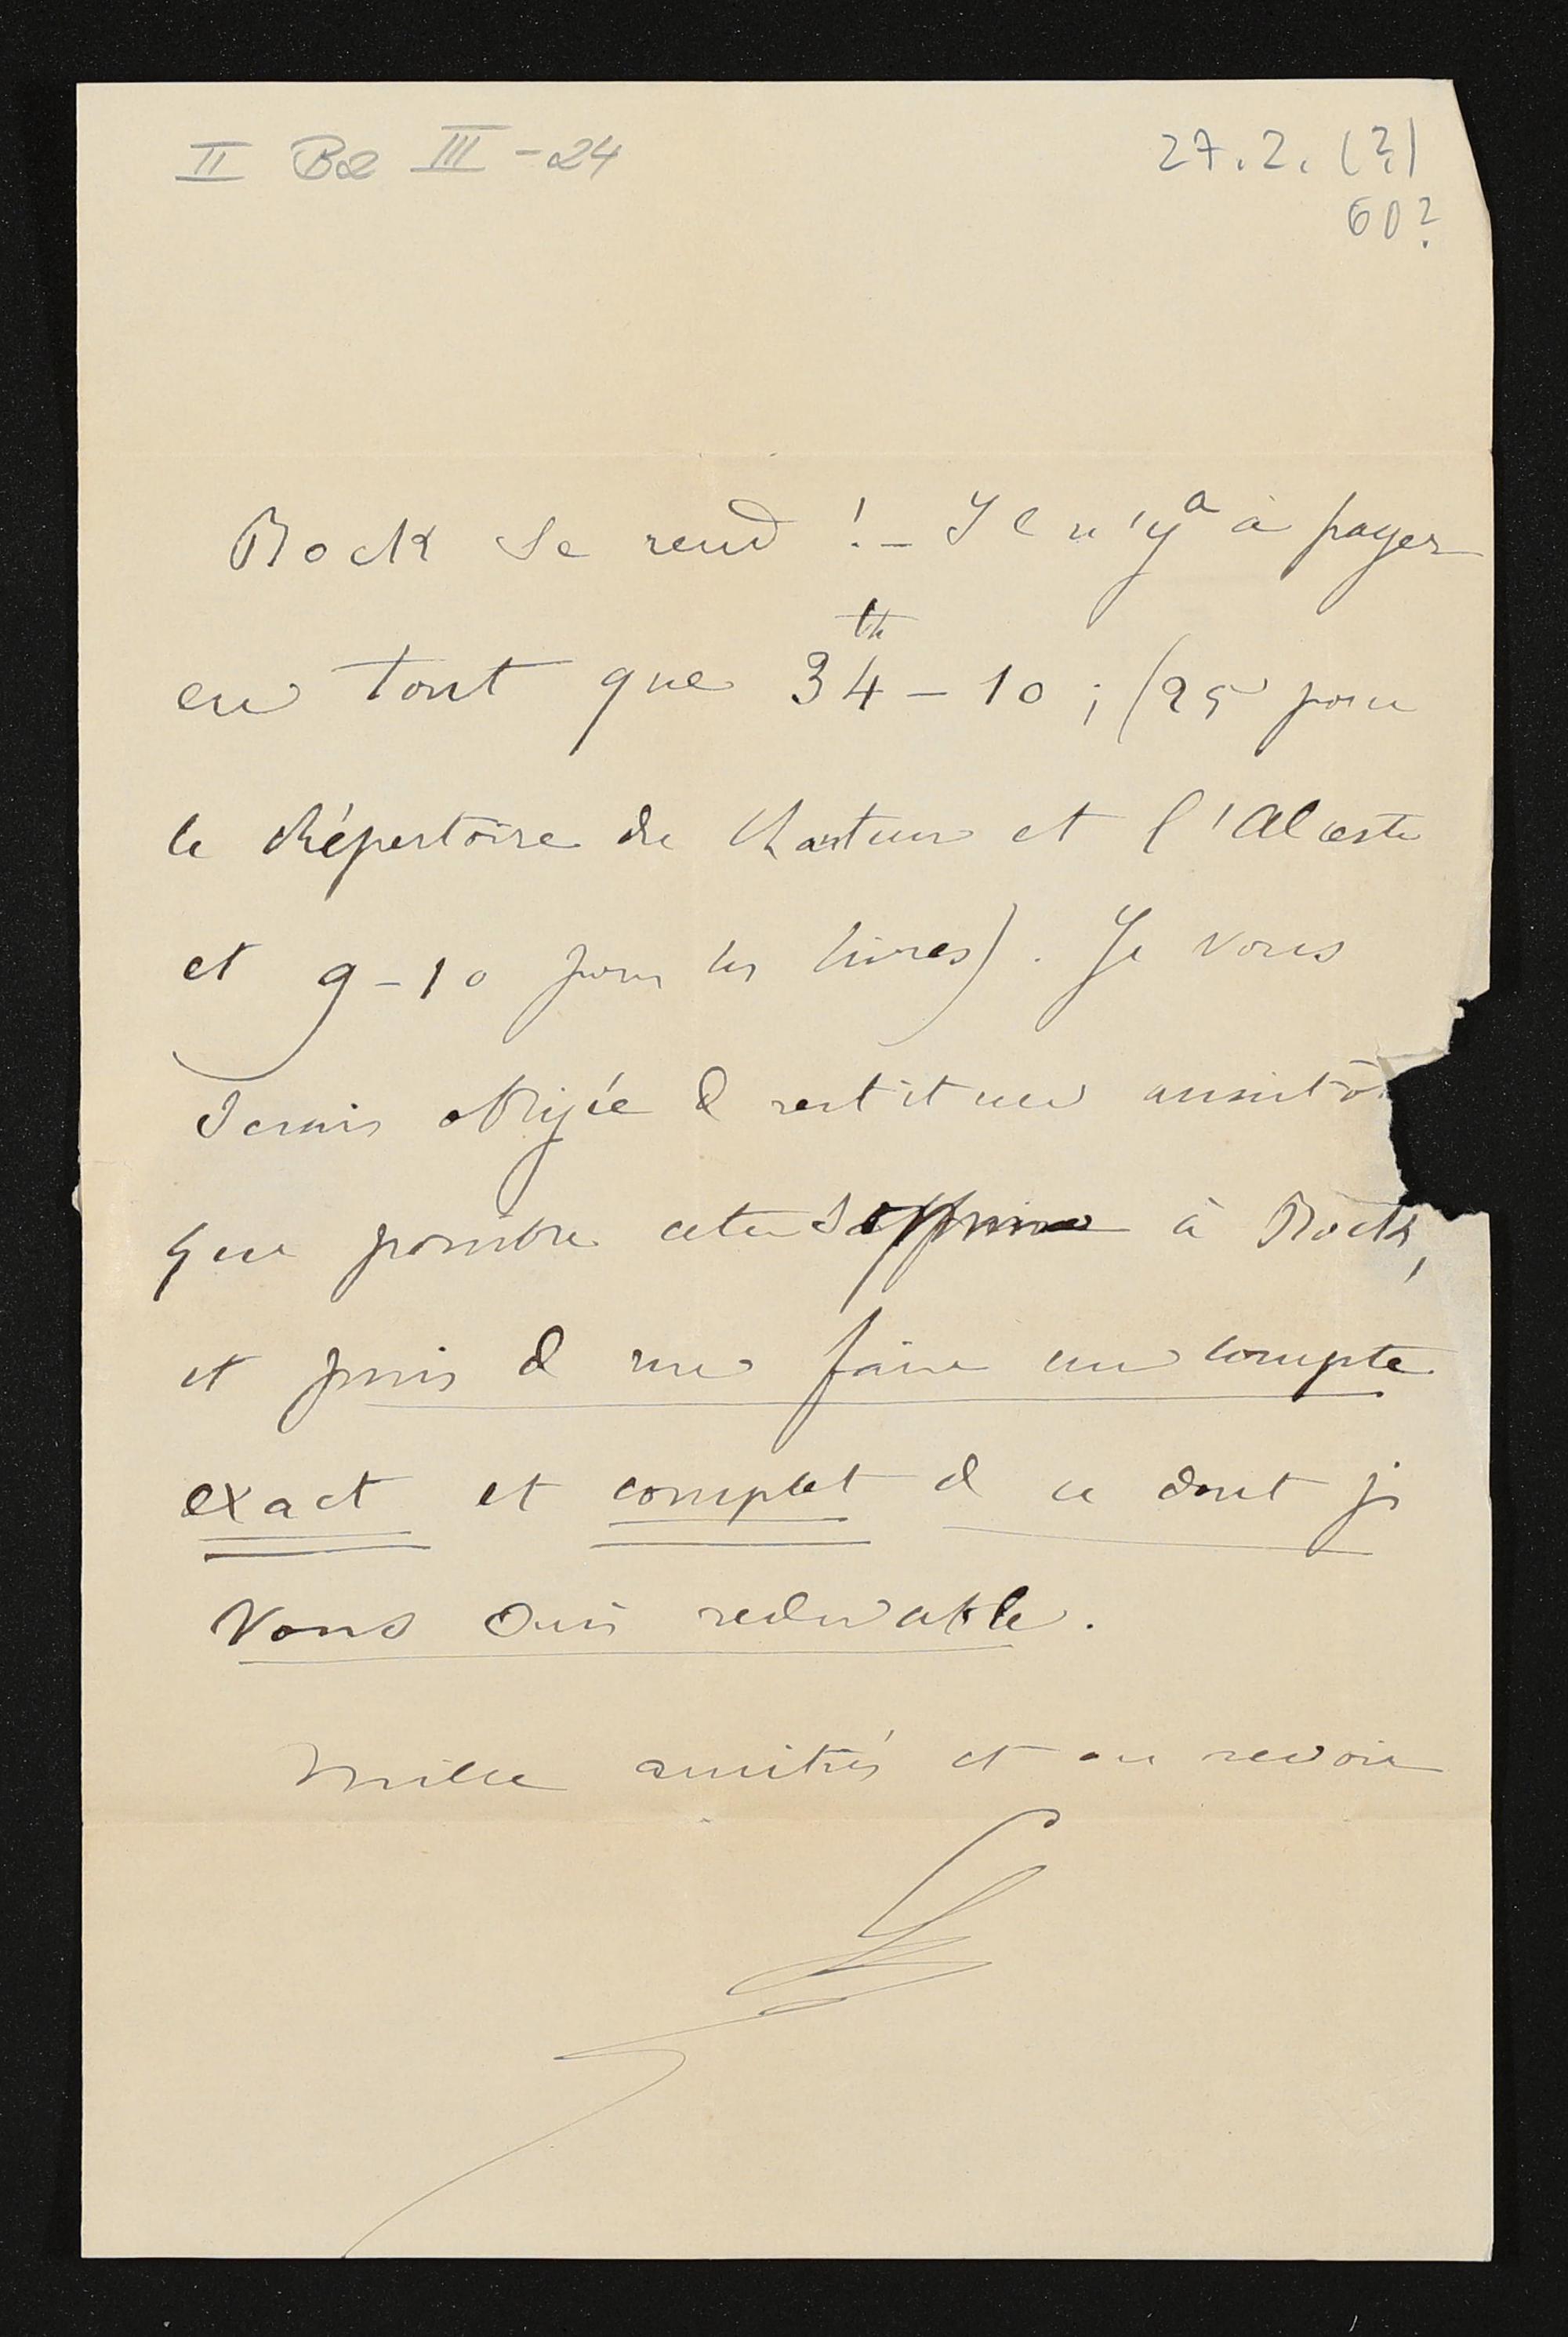 II B2 III - 24
27. 2. (?)
60?
Bock se rend ! – Il n'y a à payer
en tout que 34 th – 10 ; (25 pour
le Répertoire de Chanteur et l'Alceste
et 9 – 10 pour les livres). Je vous
serais obligée de restituer aussitô
que possible cette somme à Bock,
et puis de me faire un compte
exact et complet de ce dont je
vous suis redevable.
Mille amitiés et au revoir